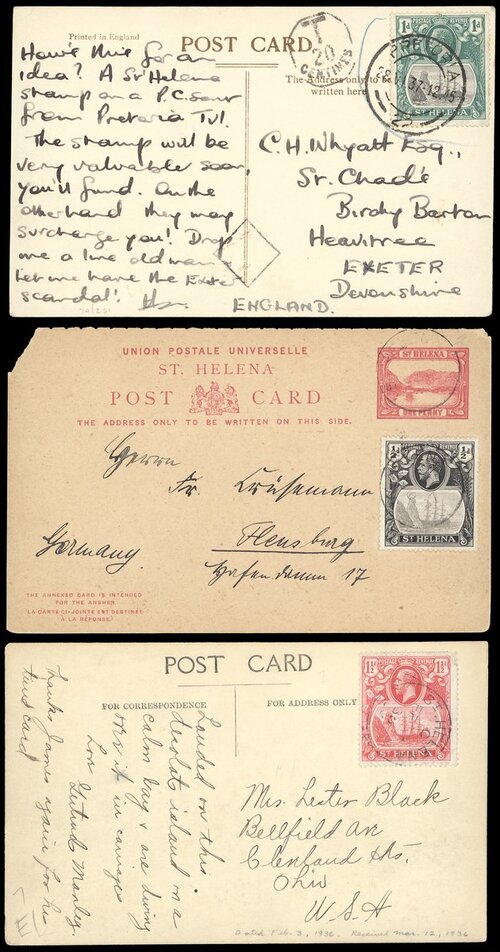 Printed in England
POST CARD.
T
20
CENTIMES
How's this for an
idea? A St Helena
stamp on a P.C. sent
from Pretoria Tvl.
The stamp will be
very valuable soon,
you'll find. On the
other hand they may
surcharge you! Drop
me a line old man &
let me have the Exeter
scandal!
The Address only to be
written here
POSTAGE REVENUE
1d 1d
ST HELENA
PRETORIA
C.H. Whyatt Esq.,
St. Chad's
Birdy Barton
Heavitree
EXETER
Devonshire
ENGLAND.
UNION POSTALE UNIVERSELLE
ST. HELENA
POST CARD
THE ADDRESS ONLY TO BE WRITTEN ON THIS SIDE.
ST HELENA
ONE PENNY
POSTAGE REVENUE
½d ½d
ST HELENA
Herrn
Fr. Krüsemann
Flensburg
Hafendamm 17
Germany.
THE ANNEXED CARD IS INTENDED
FOR THE ANSWER.
LA CARTE CI-JOINTE EST DESTINÉE
À LA RÉPONSE.
POST CARD
FOR CORRESPONDENCE
FOR ADDRESS ONLY
POSTAGE REVENUE
1½d 1½d
ST HELENA
Landed on this
desolat island on a
calm day & are diving
over it in carriages
Love
Gertrude Manley.
Thanks James again for his
card
Mrs. Lester Black
Bellfield Ave
Cleveland Hts.
Ohio
U.S.A
Dated Feb. 3, 1936. Received Mar. 12, 1936